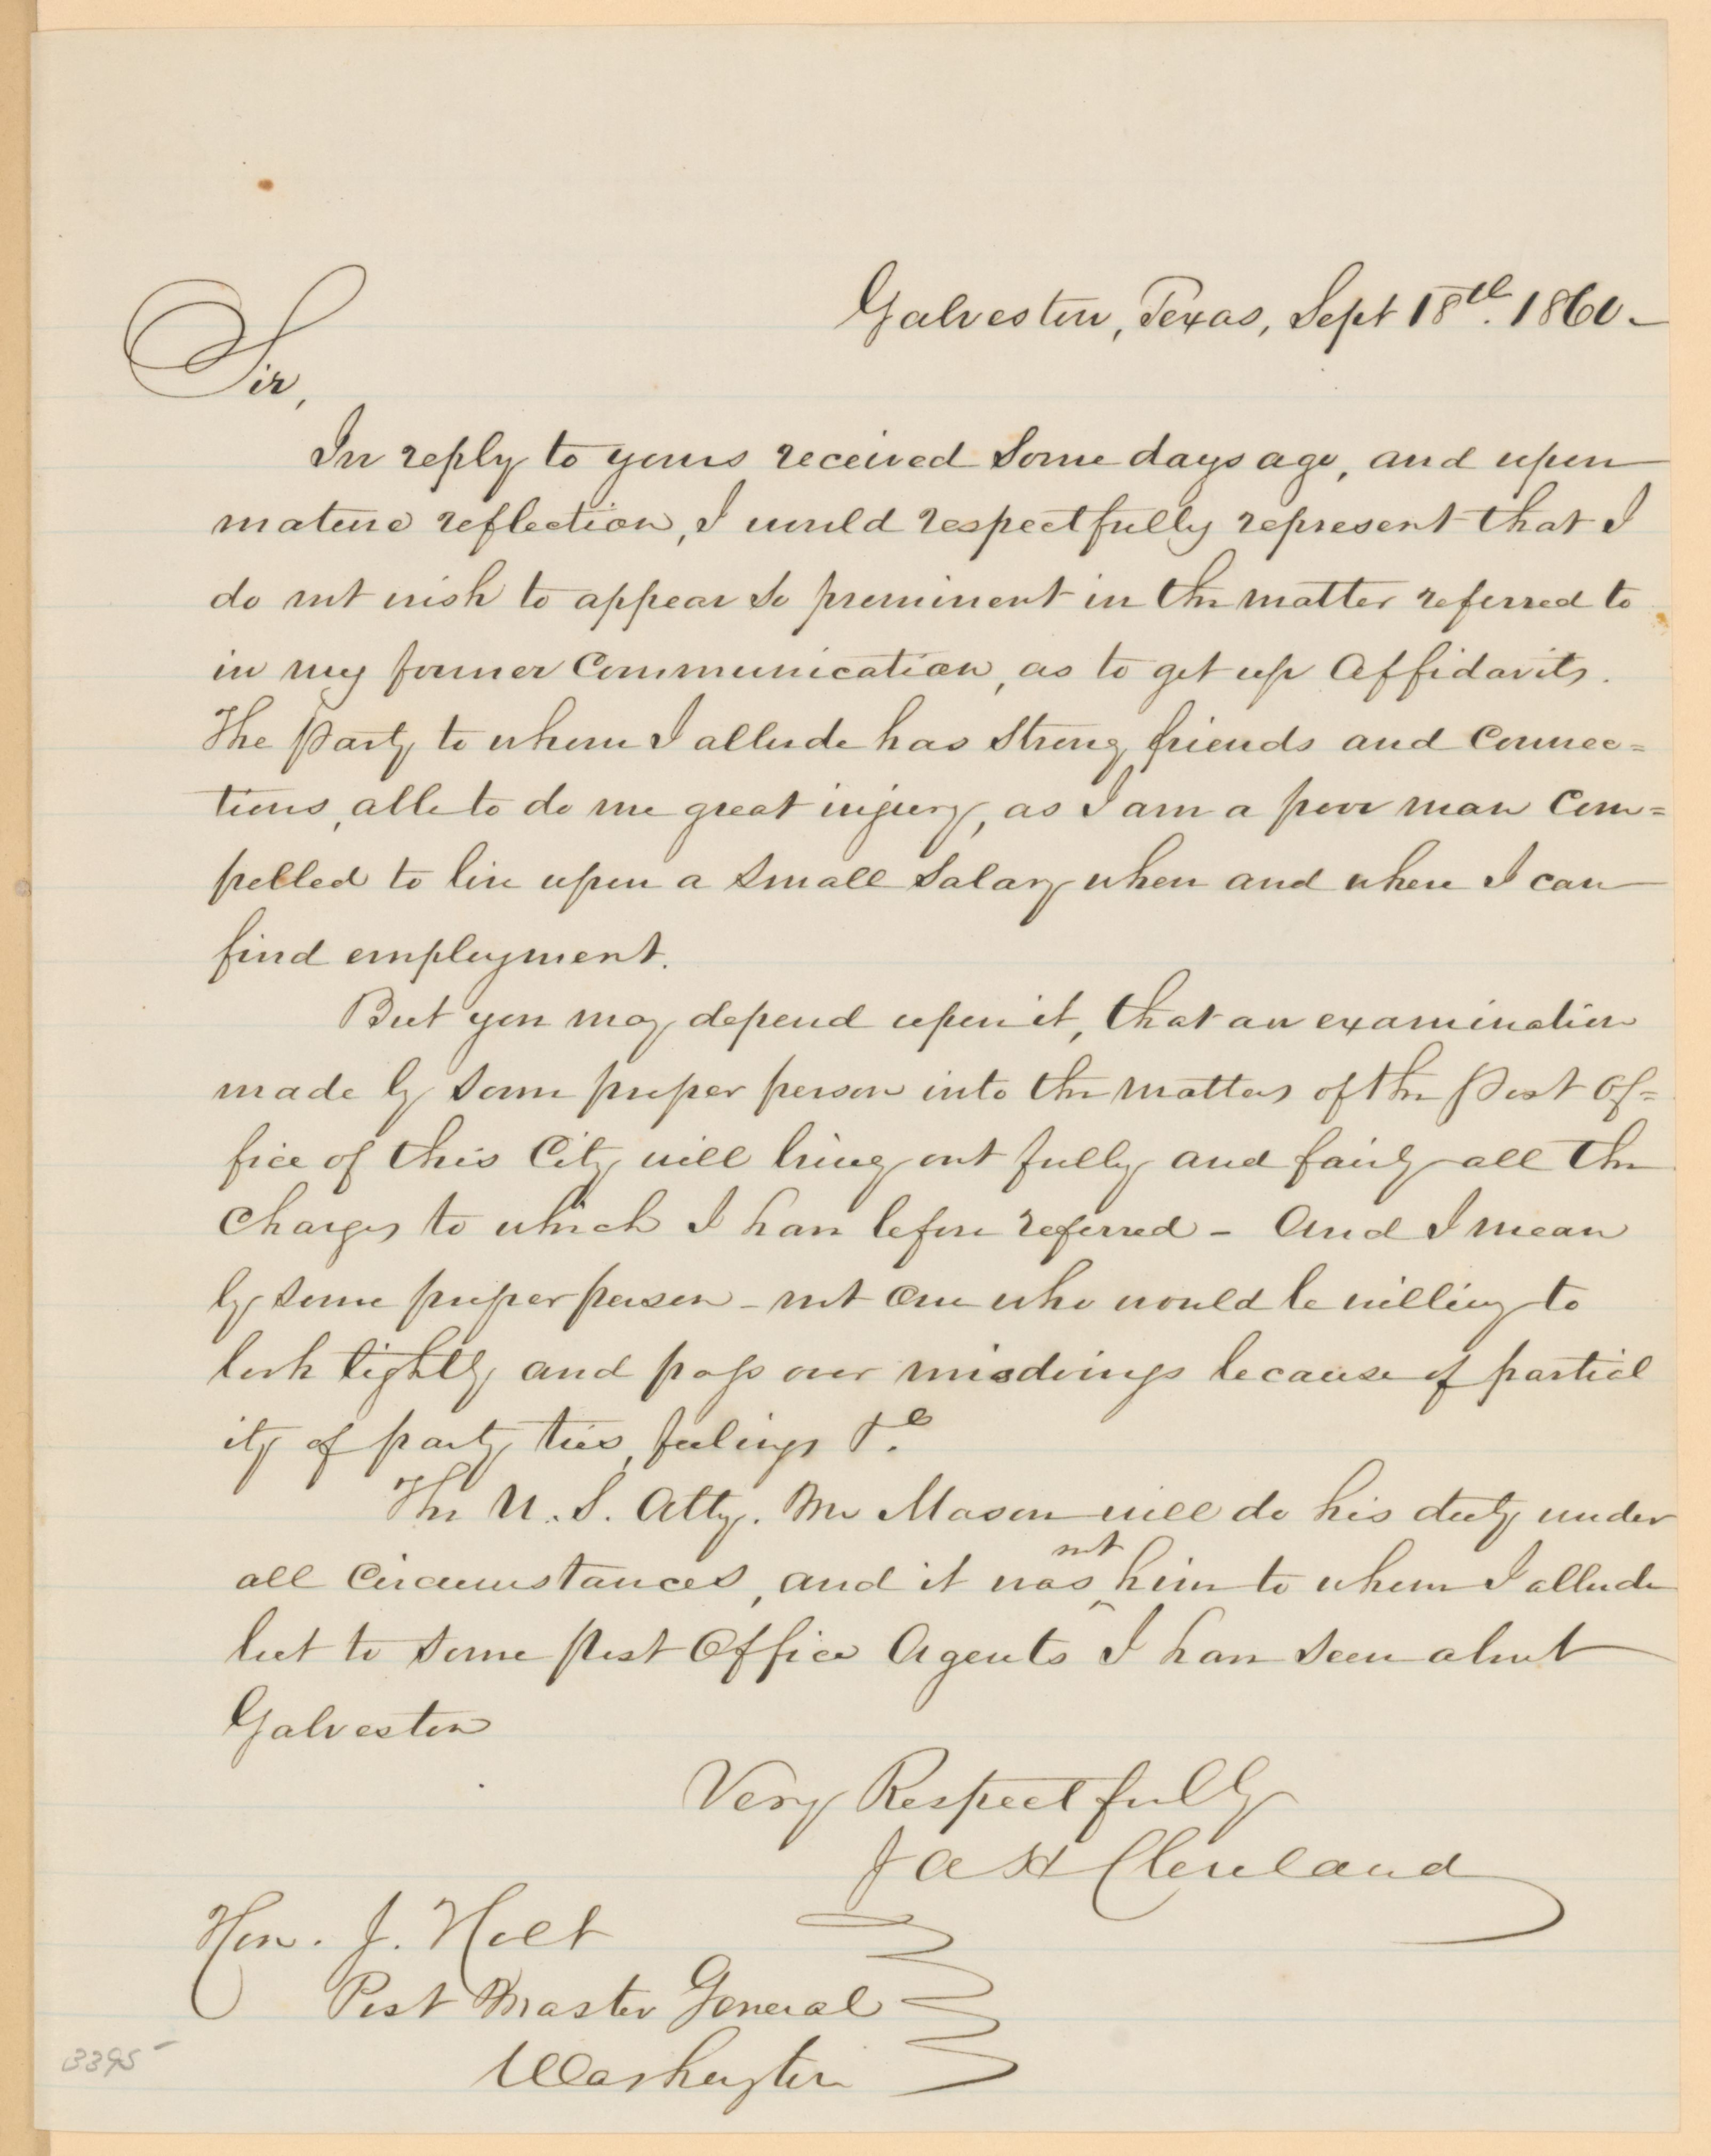 Galveston, Texas, Sept 18th. 1860 -
Sir,
In reply to yours received some days ago, and upon
mature reflection, I would respectfully represent that I
do not wish to appear so prominent in the matter referred to
in my former communication, as to get up affidavits.
The Party to whom I allude has strong friends and connec=
tions, able to do me great injury, as I am a poor man com=
pelled to live upon a small salary when and where I can
find employment.
But you may depend upon it, that an examination
made by some proper person into the matters of the Post Of=
fice of this City will bring out fully and fairly all the
charges to which I have before referred - And I mean
by some proper person - not one who would be willing to
look lightly and pass over misdoings because of partial
ity of party ties, feelings &c.
The U. S. Atty. Mr Mason will do his duty under
all circumstances, and it was not him to whom I allude
but to some Post Office Agents I have seen about
Galveston
Very Respectfully
Jas H Cleveland
Hon. J. Holt
Post Master General
Washington
3395-